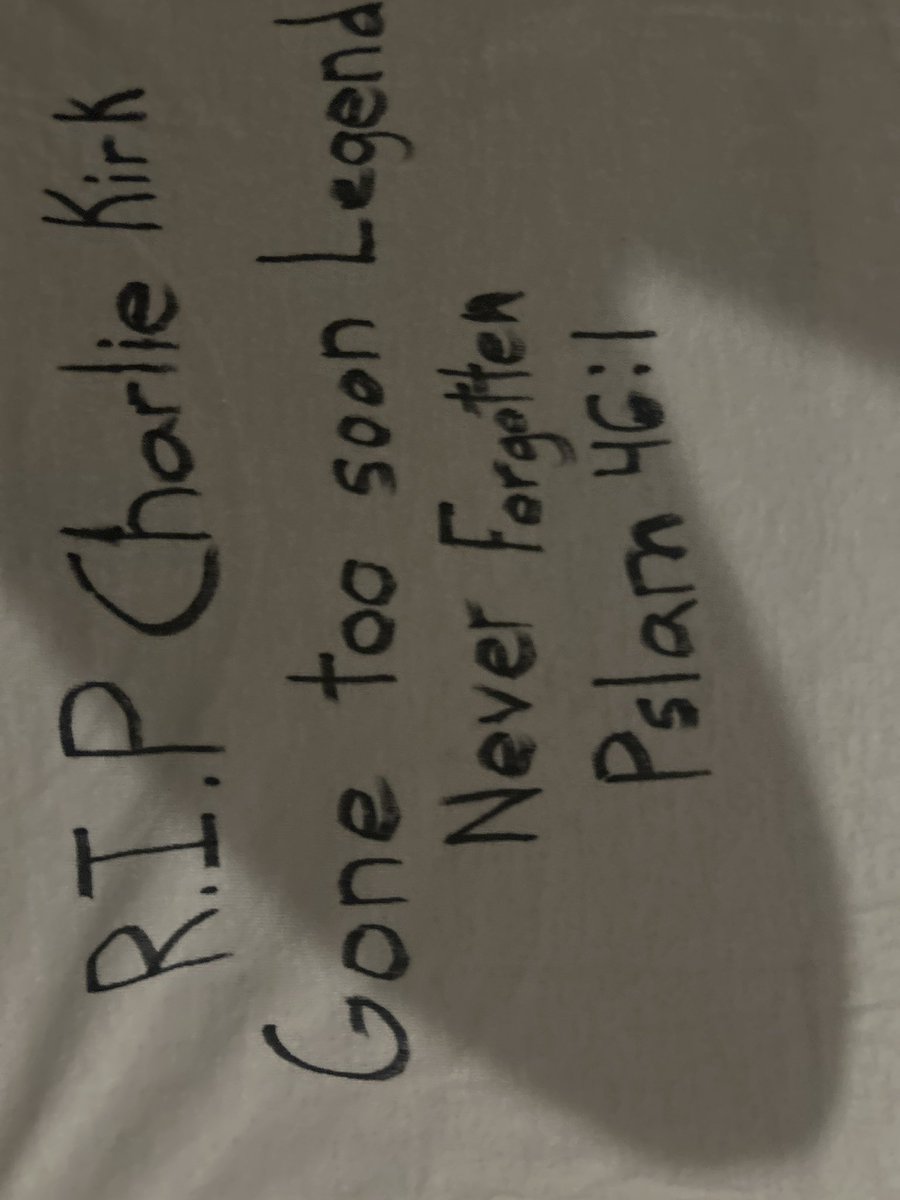 R.I.P Charlie Kirk
Gone too soon Legend
Never Forgotten
Pslam 46:1